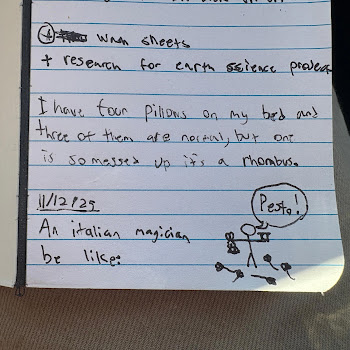 wash sheets
+ research for earth science project
I have four pillows on my bed and
three of them are normal, but one
is so messed up it's a rhombus.
11/12/25
An italian magician
be like:
Pesto!